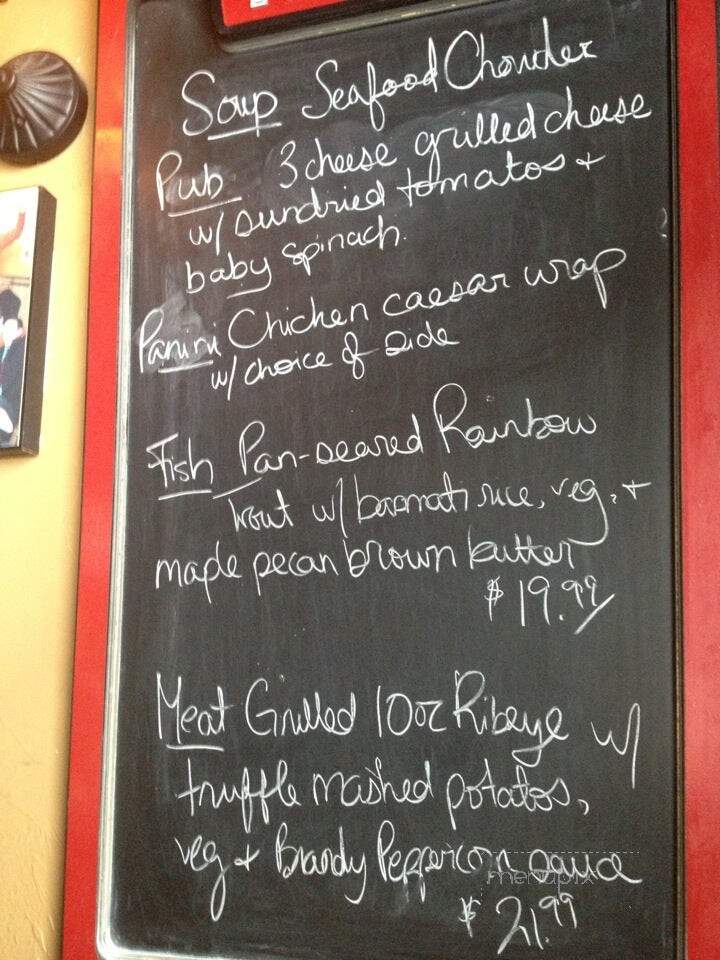 Soup Seafood Chowder
Pub 3 cheese grilled cheese
w/ sundried tomatos +
baby spinach.
Panini Chicken caesar wrap
w/ choice of side
Fish Pan-seared Rainbow
trout w/ basmati rice, veg. +
maple pecan brown butter
$19.99
Meat Grilled 10oz Ribeye w/
truffle mashed potatos,
veg + Brandy Peppercorn sauce
menupix
$21.99